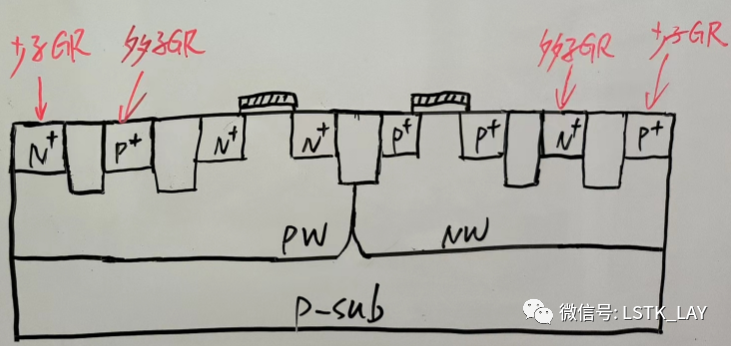 少子GR 多子GR 多子GR 少子GR
N+ P+ N+ N+ P+ P+ N+ P+
PW NW
P-sub
微信号: LSTK_LAY